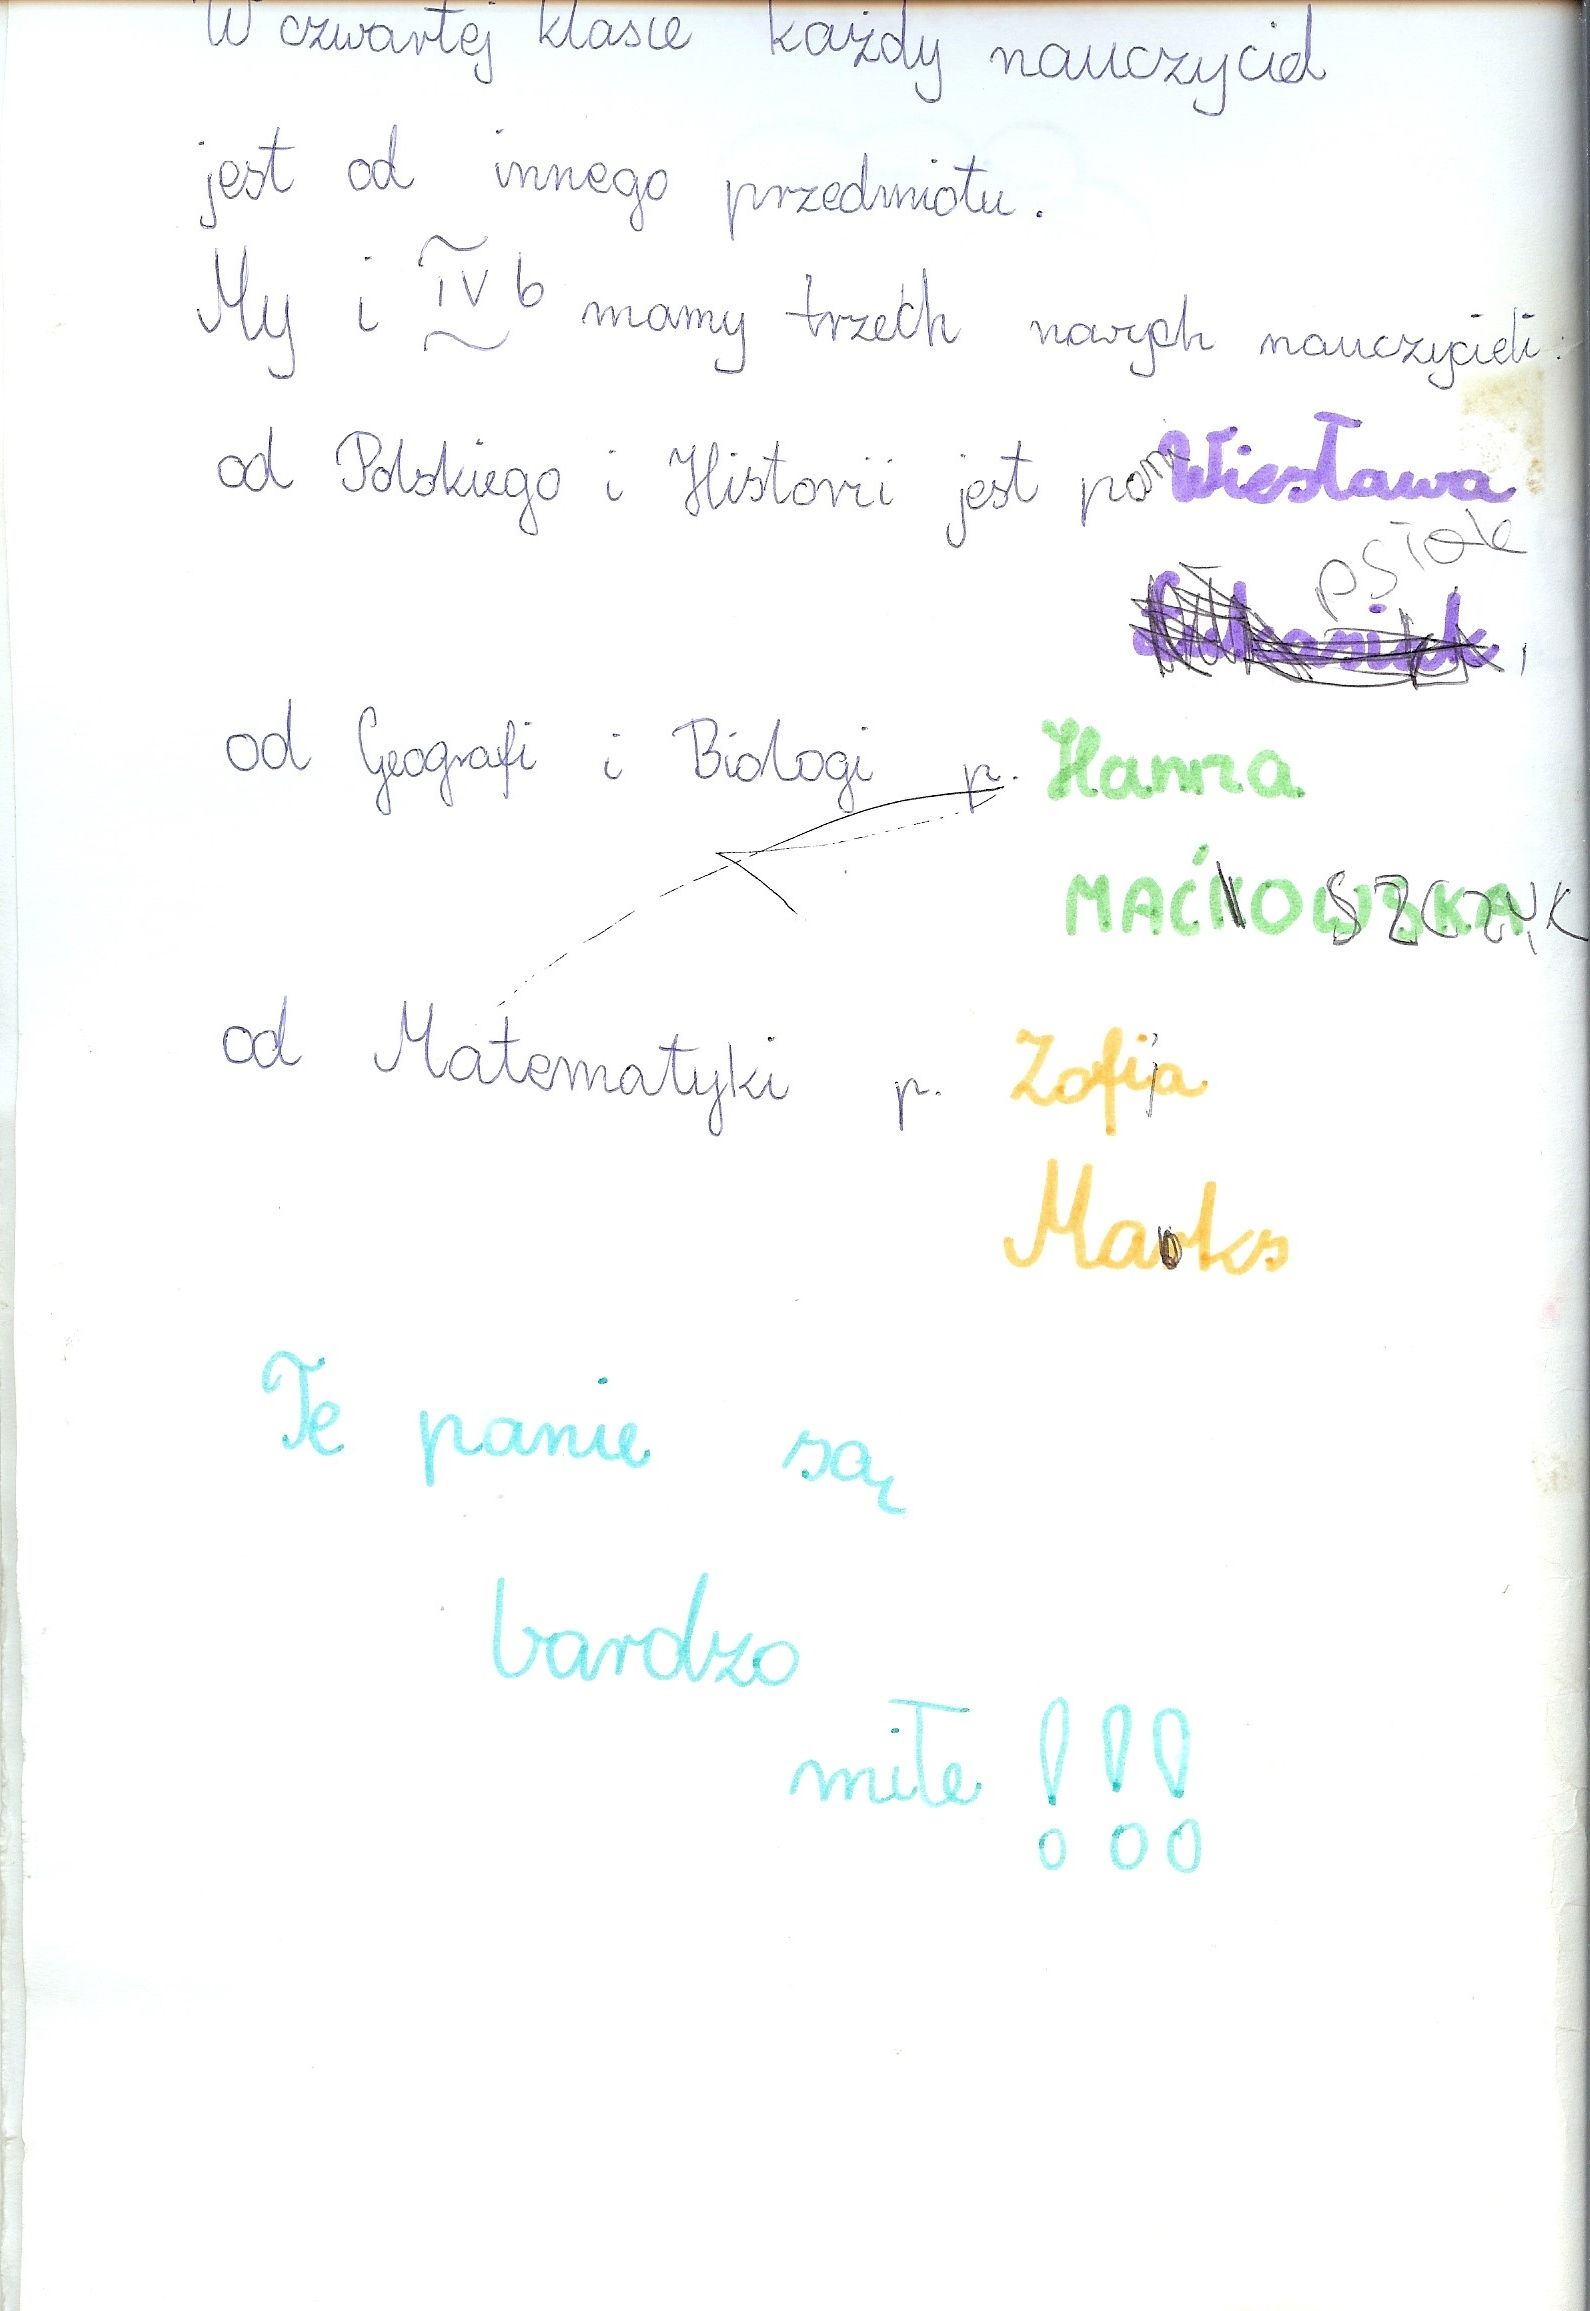 W czwartej klasie każdy nauczyciel
jest od innego przedmiotu.
My i IV b mamy trzech nowych nauczycieli:
od Polskiego i Historii jest pani Wiesława
psiak
od Geografi i Biologi p. Hanna
MAĆKOWSKA SZCZUK
od Matematyki p. Zofija
Marks
Te panie są
bardzo
miłe !!!